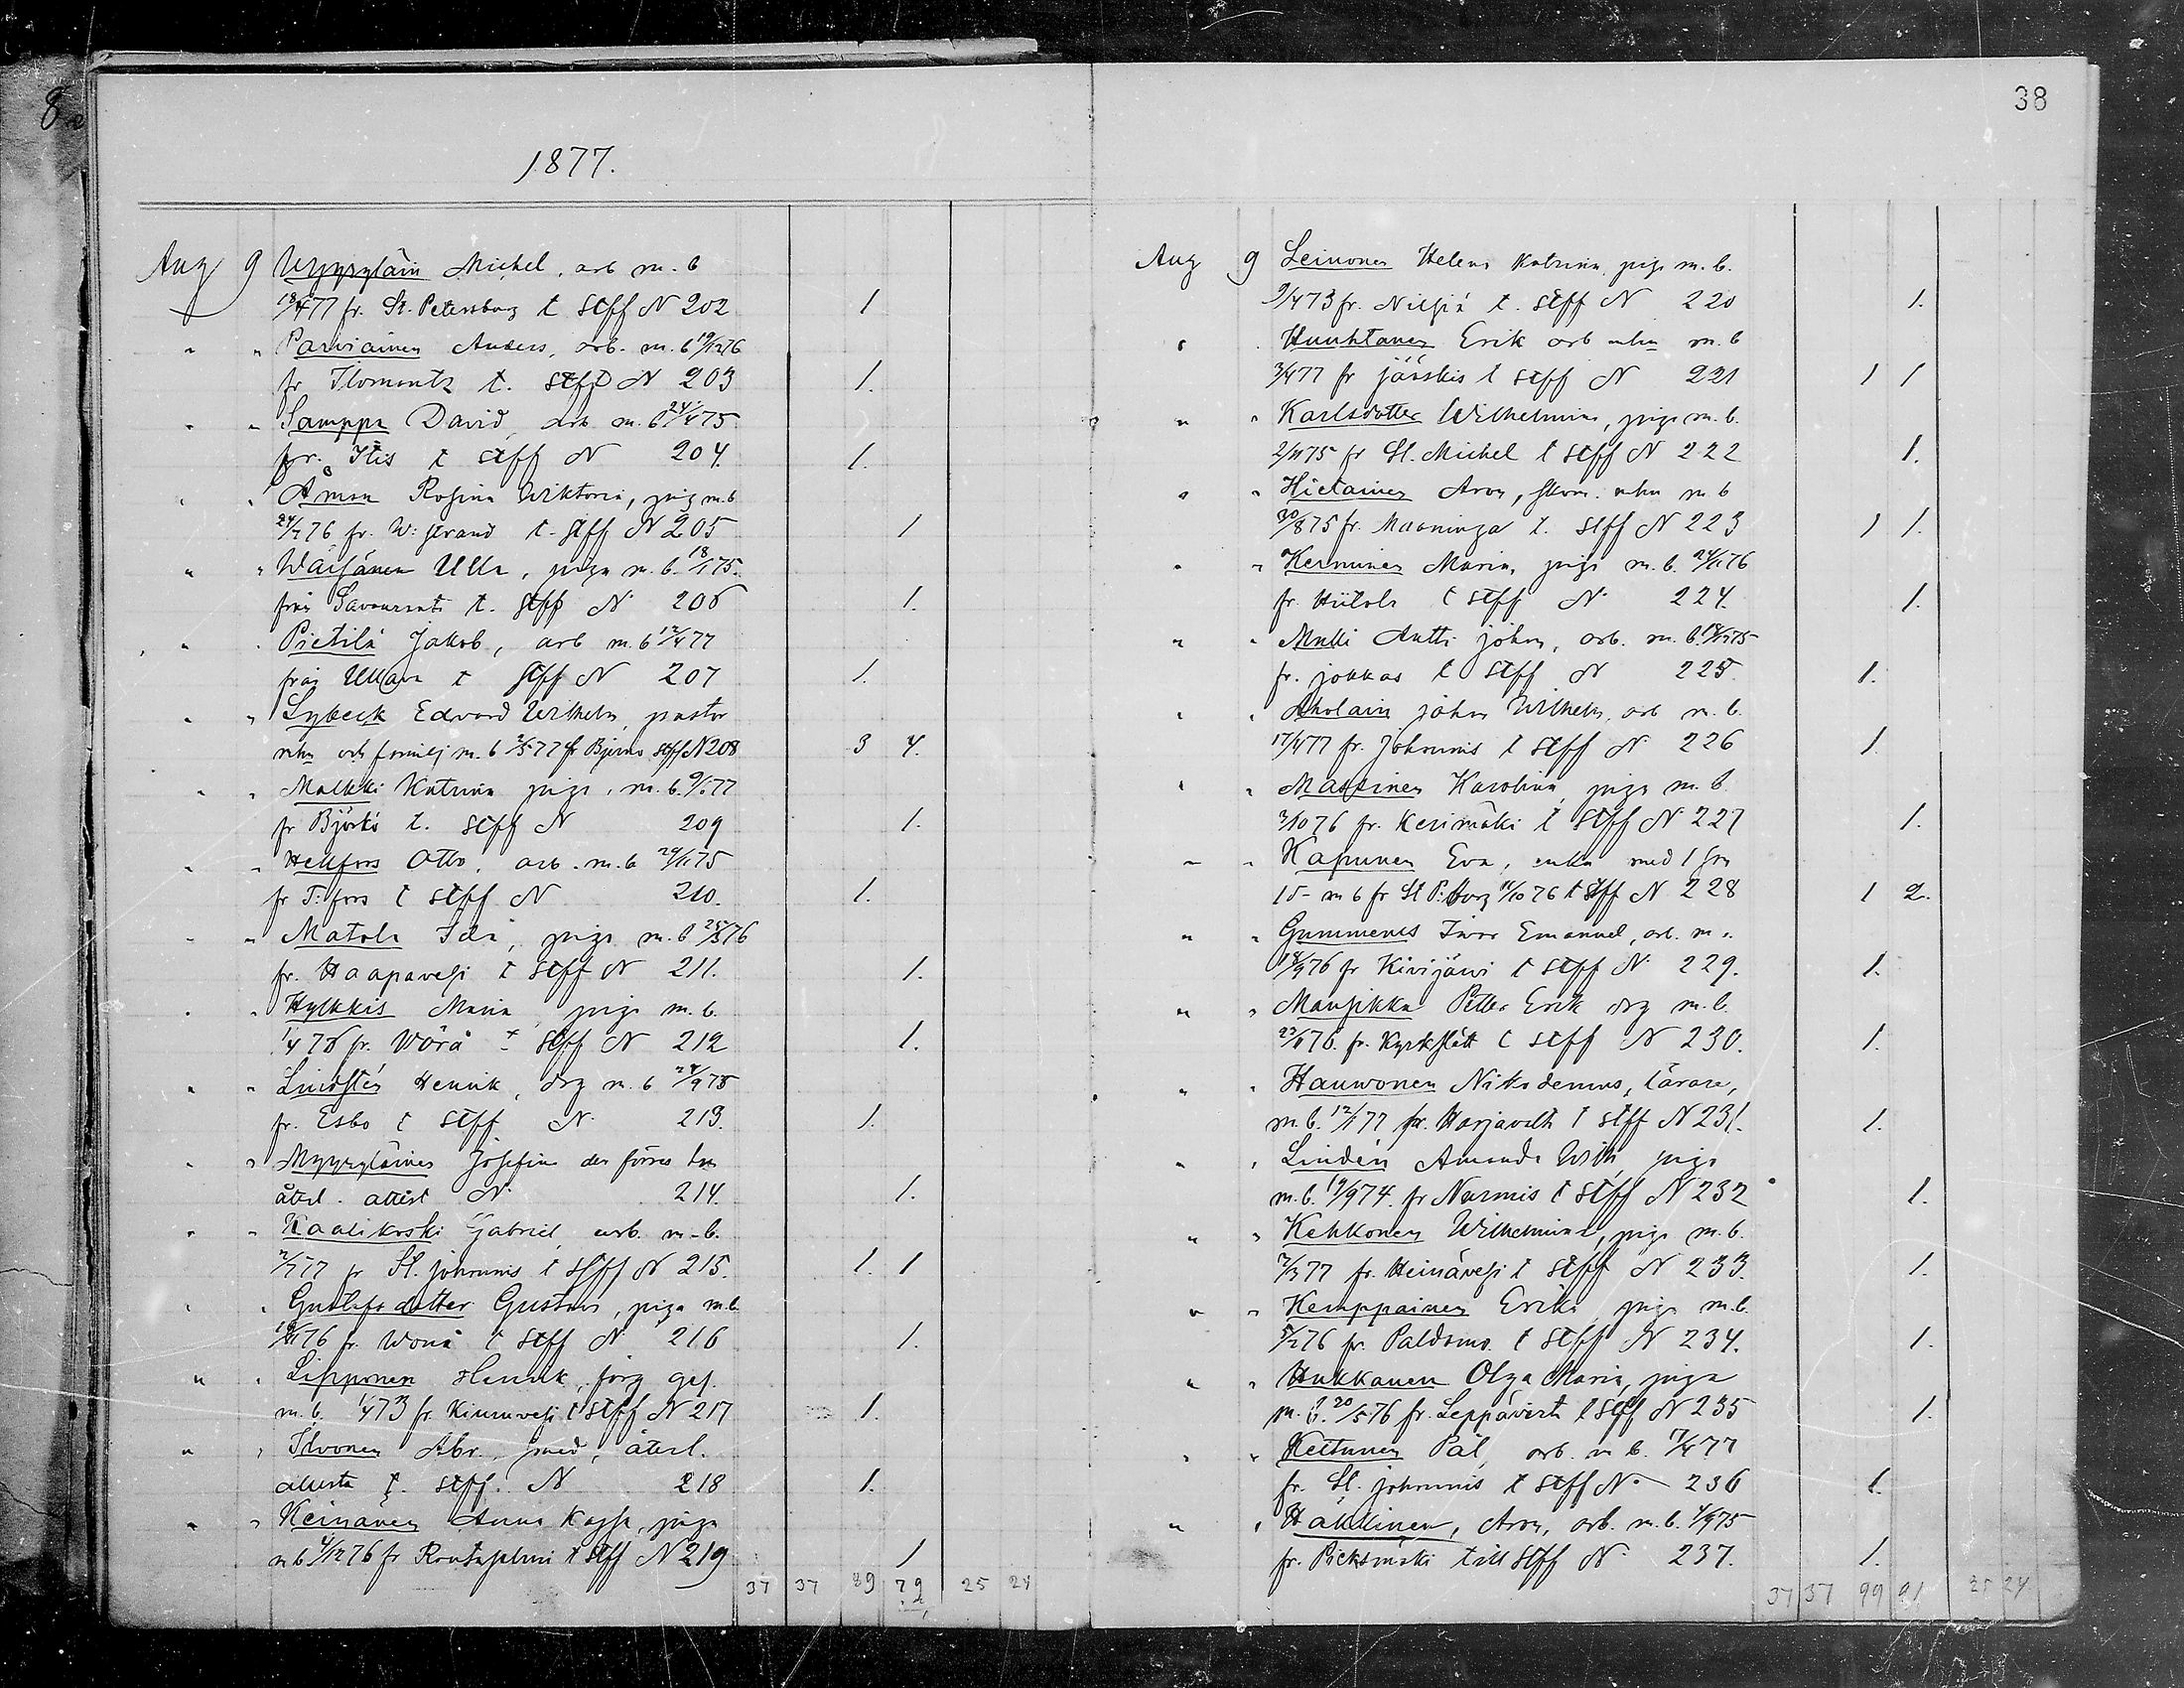 38
1877.
Aug 9 Myyryläin Michel, arb m. b
18/4 77 fr. St. Petersburg t Stff N 202 1
" " Parviainen Anders, arb. m. b 19/12 76
fr Ilomants t. Stff N 203 1.
" " Samppa David, arb m. b 24/4 75
fr. Itis t Stff N 204. 1.
" " Åman Rosina Wiktoria, pig m. b
24/7 76 fr. W: strand t. Stff N 205 1
" " Wäisänen Ulla, piga m. b. 18/1 75.
från Savonranta t. Stff N 206 1.
" " Pietilä Jakob, arb m. b 12/4 77
från Ullava t Stff N 207 1.
" " Lybeck Edvard Wilhelm, pastor
mhu och familj m. b 2/5 77 fr Bjerno Stff N 208 3 4.
" " Malkki Katrina piga, m. b. 9/6 77
fr Björkö t. Stff N 209 1.
" " Hellfors Otto, arb. m. b 29/11 75
fr T: fors t Stff N 210. 1.
" " Matola Ida, piga m. b 25/3 76
fr. Haapavesi t Stff N 211. 1.
" " Hylkkis Maria, piga m. b.
1/4 76 fr. Wörå t Stff N 212 1.
" " Lindstén Henrik, drg m. b 24/9 75
fr. Esbo t Stff N. 213. 1.
" " Myyryläinen Josefina des förres hu
återl. attest N. 214. 1.
" " Kaalikoski Gabriel arb. m. b.
2/7 77 fr St. Johannis t Stff N 215. 1. 1
" " Gustafsdotter Gustava, piga m. b.
10/11 76 fr. Wörå t Stff N 216 1.
" " Lipponen Henrik, förg ges.
m. b. 1/4 73 fr. Kiuruvesi t Stff N 217 1.
" " Ilvonen Abr. smed, återl.
attesta t. Stff. N 218 1.
" " Keinänen Anna Kajsa, piga
m b 4/12 76 fr Rantasalmi t Stff N 219 1
37 37 89 79 25 24
Aug 9 Leinonen Helena Katrina, piga m. b.
9/4 73 fr. Nilsiä t. Stff N 220 1.
" " Huuhtanen Erik arb mhu m. b
3/4 77 fr Jääskis t Stff N 221 1 1
" " Karlsdotter Wilhelmina, piga m. b.
2/11 75 fr St. Michel t Stff N 222 1.
" " Hietainen Aron, skom. mhu m. b
30/8 75 fr. Maaninga t. Stff N 223 1 1.
" " Kerminen Maria, piga m. b. 24/11 76
fr. Hiitola t Stff N. 224. 1.
" " Mulli Antti Johan, arb. m. b. 18/12 75
fr. Jokkas t Stff N 225. 1.
" " Aholain Johan Wilhelm, arb m. b.
17/4 77 fr. Johannis t Stff N. 226 1
" " Massinen Karolina, piga m. b.
3/10 76 fr. Kerimäki t Stff N. 227 1.
" " Kapunen Eva, enka med 1 son
1 d- m b fr St P: burg 11/10 76 t Stff N. 228 1 2.
" " Gummerus Ivar Emanuel, arb. m.
18/9 76 fr Kivijärvi t Stff N. 229. 1.
" " Mansikka Petter Erik drg m. b.
23/11 76. fr. Kyrkslätt t Stff N 230. 1.
" " Hauvonen Nikodemus, lärare,
m. b. 12/1 77 fr. Harjavalta t Stff N 231. 1.
" " Lindén Amanda Wilh, piga
m. b. 19/9 74. fr Nurmis t Stff N 232 1.
" " Kehkonen Wilhelmina, piga m. b.
2/3 77 fr. Heinävesi t Stff N 233. 1.
" " Kemppainen Erika piga m. b.
5/2 76 fr. Paldamo t Stff N 234. 1.
" " Hukkanen Olga Maria, piga
m. b. 20/5 76 fr. Leppävirta t Stff N 235 1.
" " Kettunen Pål, arb. m b. 17/4 77
fr. St. Johannis t Stff N. 236 1.
" " Häkkinen, Aron, arb. m. b. 4/9 75
fr. Pieksämäki till Stff N. 237. 1.
37 37 99 91 25 24